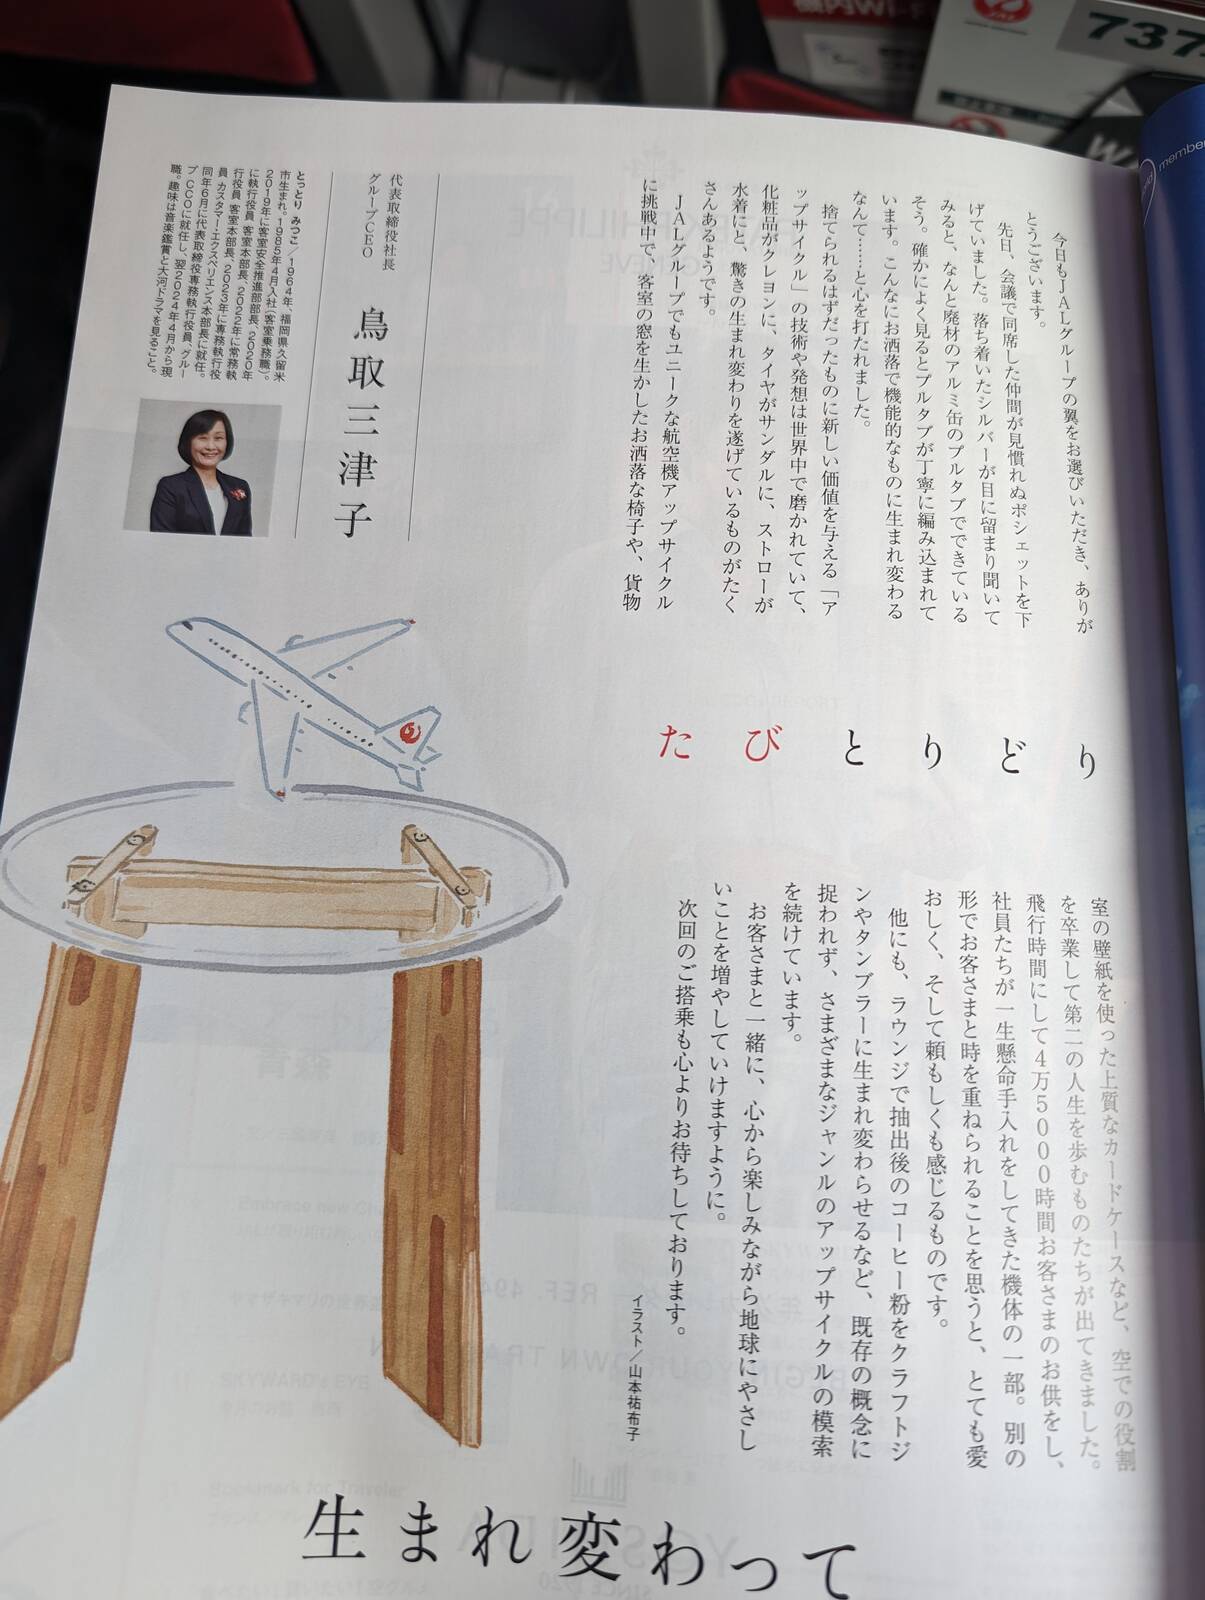 機内Wi-F
737-
member
今日もJALグループの翼をお選びいただき、ありが
とうございます。
先日、会議で同席した仲間が見慣れぬポシェットを下
げていました。落ち着いたシルバーが目に留まり聞いて
みると、なんと廃材のアルミ缶のプルタブでできている
そう。確かによく見るとプルタブが丁寧に編み込まれて
います。こんなにお洒落で機能的なものに生まれ変わる
なんて……と心を打たれました。
捨てられるはずだったものに新しい価値を与える「ア
ップサイクル」の技術や発想は世界中で磨かれていて、
化粧品がクレヨンに、タイヤがサンダルに、ストローが
水着にと、驚きの生まれ変わりを遂げているものがたく
さんあるようです。
JALグループでもユニークな航空機アップサイクル
に挑戦中で、客室の窓を生かしたお洒落な椅子や、貨物
代表取締役社長
グループCEO
鳥取三津子
とっとり みつこ／1964年、福岡県久留米
市生まれ。1985年4月入社(客室乗務職)。
2019年に客室安全推進部部長、2020年
に執行役員 客室本部長、2022年に常務執
行役員 客室本部長、2023年に専務執行役
員 カスタマー・エクスペリエンス本部長に就任。
同年6月に代表取締役専務執行役員、グルー
プCCOに就任し、翌2024年4月から現
職。趣味は音楽鑑賞と大河ドラマを見ること。
たびとりどり
室の壁紙を使った上質なカードケースなど、空での役割
を卒業して第二の人生を歩むものたちが出てきました。
飛行時間にして4万5000時間お客さまのお供をし、
社員たちが一生懸命手入れをしてきた機体の一部。別の
形でお客さまと時を重ねられることを思うと、とても愛
おしく、そして頼もしくも感じるものです。
他にも、ラウンジで抽出後のコーヒー粉をクラフトジ
ンやタンブラーに生まれ変わらせるなど、既存の概念に
捉われず、さまざまなジャンルのアップサイクルの模索
を続けています。
お客さまと一緒に、心から楽しみながら地球にやさし
いことを増やしていけますように。
次回のご搭乗も心よりお待ちしております。
イラスト／山本祐布子
生まれ変わって